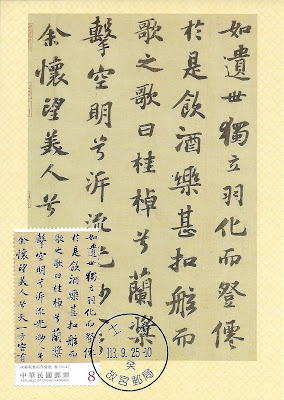 如遺世獨立羽化而登僊
於是飲酒樂甚扣舷而
歌之歌曰桂棹兮蘭槳
擊空明兮泝流光
余懷望美人兮
如遺世獨立羽化而登僊
於是飲酒樂甚扣舷而
歌之歌曰桂棹兮蘭槳
擊空明兮泝流光渺渺兮
余懷望美人兮天一方客有
中華民國郵票
REPUBLIC OF CHINA (TAIWAN)
8
士
113.9.25.-10
癸
故宮郵局